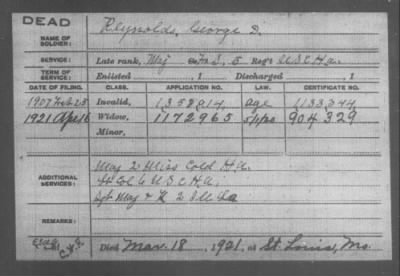 DEAD
NAME OF SOLDIER: Reynolds, George D.
SERVICE: Late rank, Maj Co. F & S, 5 Reg't U S C H A.
TERM OF SERVICE: Enlisted , 1 Discharged , 1
DATE OF FILING. CLASS. APPLICATION NO. LAW. CERTIFICATE NO.
1907 Feb 28 Invalid, 1358814, Age 1133344
1921 Apr 16 Widow, 1172965 5/1/20 904329
Minor,
ADDITIONAL SERVICES: Maj 2 Miss Cold H A.
Lt Col 6 U S C H A.
Sgt Maj & K 2 Ill
REMARKS:
Died Mar. 18, 1921, at St. Louis, Mo.